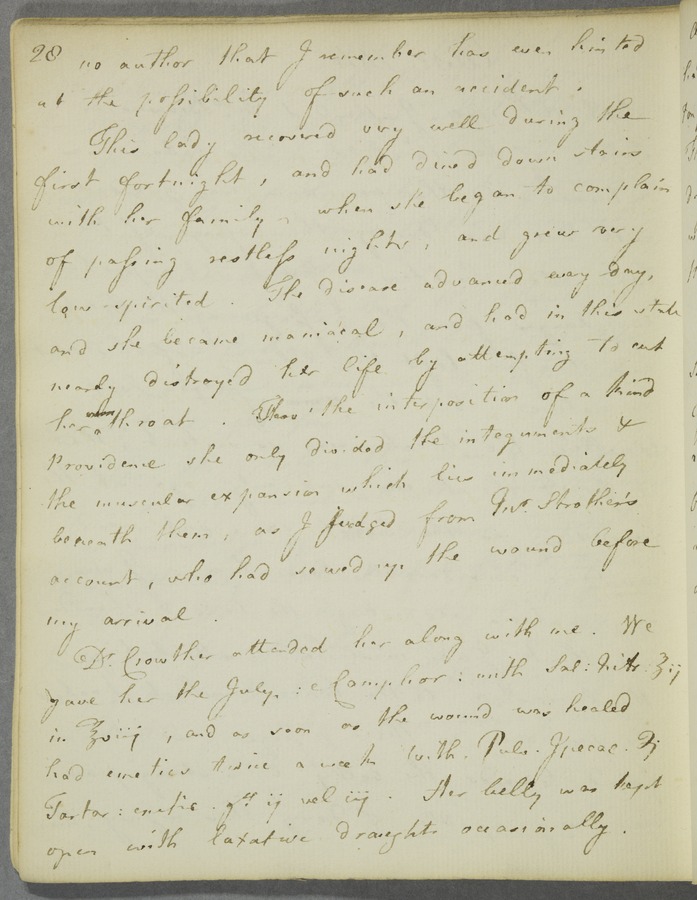 28 no author that I remember has ever hinted
at the possibility of such an accident.
This lady recovered very well during the
first fortnight, and had dined down stairs
with her family, when she began to complain
of passing restless nights, and grew very
low-spirited. The disease advanced every day,
and she became maniacal, and had in this state
nearly distroyed her life by attempting to cut
her throat. Thro' the interposition of a kind
Providence she only divided the integuments &
the muscular expansion which lies immediately
beneath them, as I judged from Mr. Strother's
account, who had sewed up the wound before
my arrival.
Dr. Crowther attended her along with me. We
gave her the Julep: e Camphor: with Sal: Nitr: ʒij
in ℥viij, and as soon as the wound was healed
had emetics twice a week with Pulv. Ipecac. ℈j
Tartar: emetic. grs ij vel iij. Her belly was kept
open with laxative draughts occasionally.